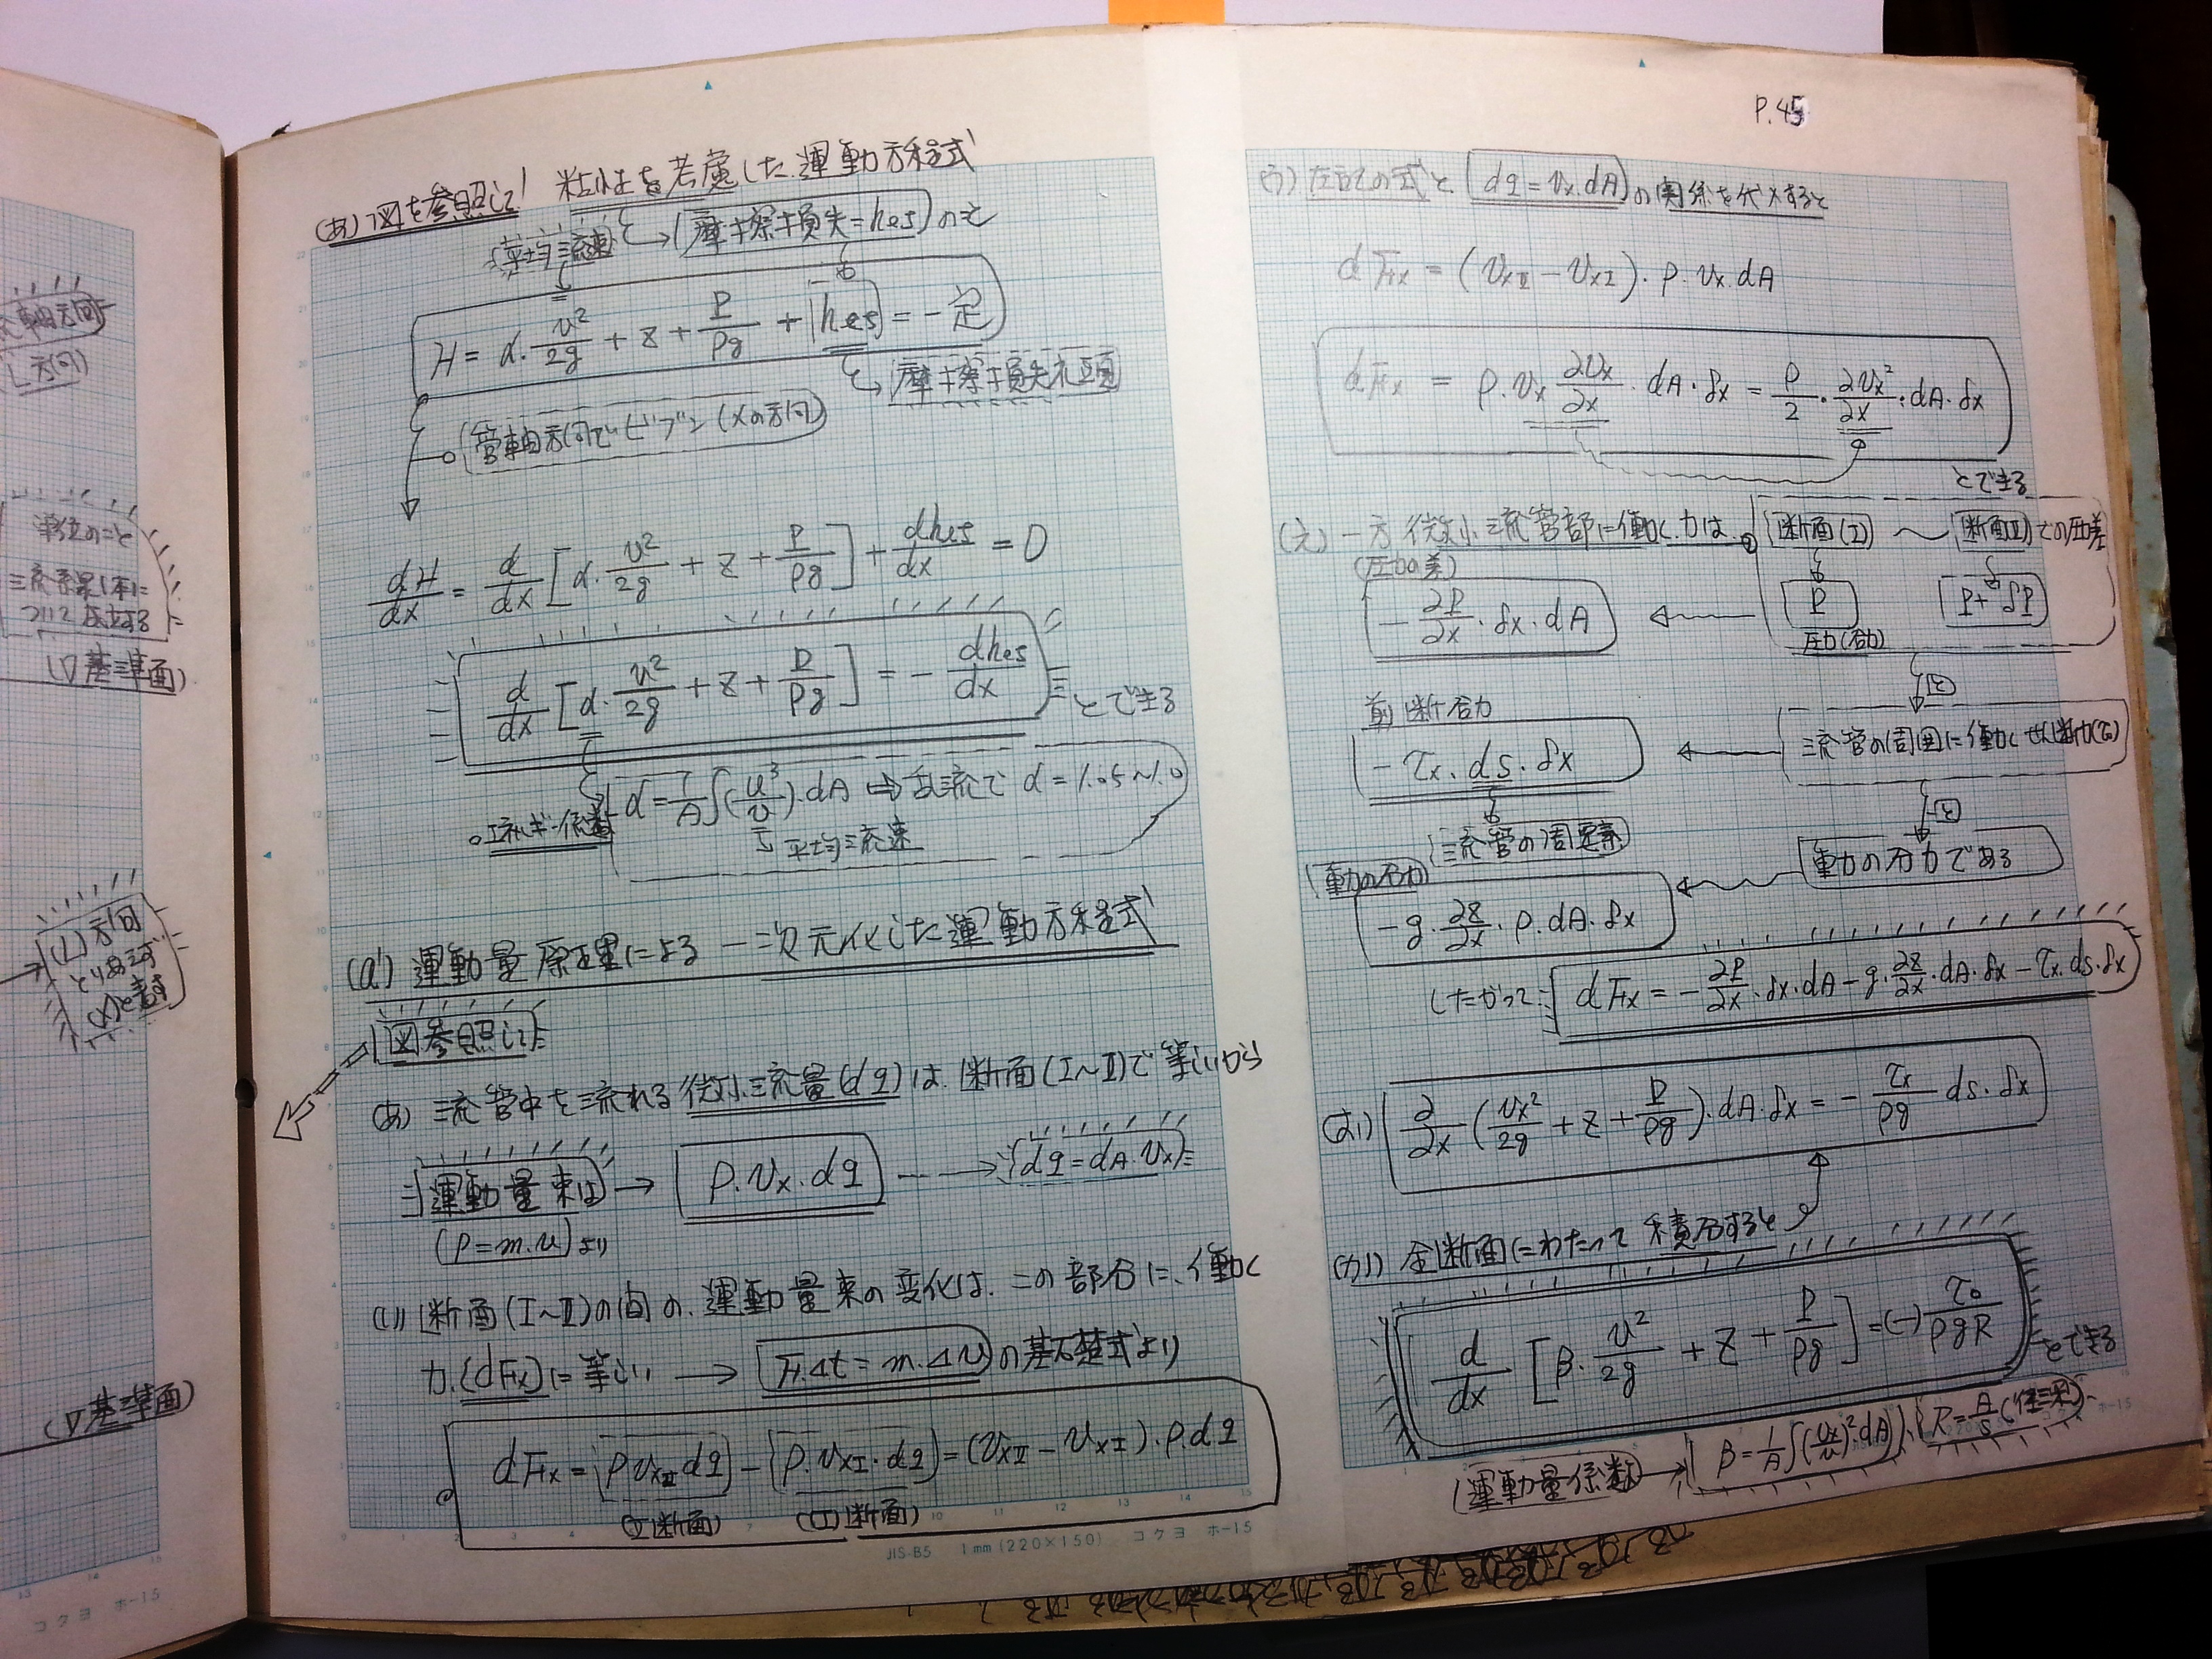 P.45
(あ) 図を参照して! 粘性を考慮した運動方程式
平均流速
摩擦損失=hes のと
H = α・v²/2g + z + P/ρg + hes = 一定
摩擦損失水頭
管軸方向でビブン (Xの方向)
dH/dx = d/dx [α・v²/2g + z + P/ρg] + dhes/dx = 0
d/dx [α・v²/2g + z + P/ρg] = − dhes/dx とできる
エネルギー係数 α = 1/A ∫(u³/v)・dA ⇒ 乱流で α = 1.05~1.0
平均流速
(a') 運動量原理による 一次元化した運動方程式
図参照して
(あ) 流管中を流れる微小流量(dq)は、断面(I~II)で等しいから
運動量束は → ρ.vx.dq ---→ dq=dA.vx
(P=m.v)より
(い) 断面(I~II)の間の、運動量束の変化は、この部分に、働く
力.(dFx)に等しい → F.Δt = m.Δv の基礎式より
dFx = ρvxIIdq − ρ.vxI.dq = (vxII − vxI).ρ.dq
(II断面) (I)断面
JIS-B5 1mm (220×150) コクヨ ホ-15
う) 左記の式と dq=vx.dA の関係を代入すると
dFx = (vxII − vxI).ρ.vx.dA
dFx = ρ.vx ∂vx/∂x・dA・δx = ρ/2・∂vx²/∂x・dA・δx
とできる
(え) 一方 微小流管部に働く力は、 断面(I) ~ 断面(II)での圧差
(圧力の差)
− ∂P/∂x・δx・dA ← P P+δP
圧力(応力)
と
剪断応力
− τx.ds.δx ← 流管の周囲に働くせん断力(τ)
と
流管の周辺素
重力の分力 重力の分力である
−g.∂z/∂x・ρ.dA.δx
したがって: dFx = −∂P/∂x・δx.dA − g.∂z/∂x.dA.δx − τx.ds.δx
(お) ∂/∂x (vx²/2g + z + P/ρg).dA.δx = − τx/ρg ds.δx
(か) 全断面にわたって積分すると
d/dx [β・v²/2g + z + P/ρg] = (−) τ₀/ρgR とできる
(運動量係数) → β = 1/A ∫(vx/v)².dA R = A/S (径深)
流軸方向
(L方向)
(▽基準面)
(L)方向
とりあえず
(X)と表す
(▽基準面)
コクヨ ホ-15